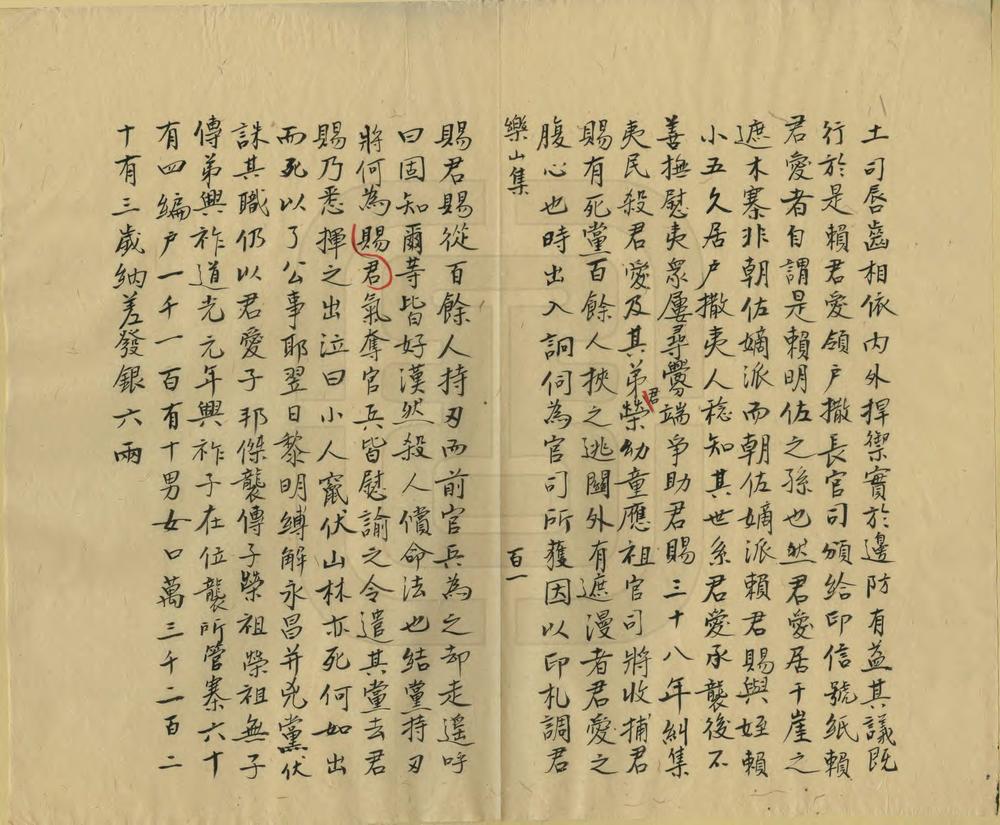 土司唇齒相依內外捍禦實於邊防有益其議既
行於是賴君愛領户撒長官司頒給印信號紙賴
君愛者自謂是賴明佐之孫也然君愛居干崖之
遮木寨非朝佐嫡派而朝佐嫡派賴君賜與姪賴
小五久居户撒夷人稔知其世系君愛承襲後不
善撫慰夷衆屢尋釁端爭助君賜三十八年糾集
夷民殺君愛及其弟君榮幼童應祖官司將收捕君
賜有死黨百餘人挾之逃關外有遮漫者君愛之
腹心也時出入詗伺為官司所獲因以印札調君
樂山集
百一
賜君賜從百餘人持刃而前官兵為之却走遥呼
曰固知爾等皆好漢然殺人償命法也結黨持刃
將何為君賜氣奪官兵皆慰諭之令遣其黨去君
賜乃悉揮之出泣曰小人竄伏山林亦死何如出
而死以了公事耶翌日黎明縛解永昌并兇黨伏
誅其職仍以君愛子邦傑襲傳子榮祖榮祖無子
傳弟興祚道光元年興祚子在位襲所管寨六十
有四編户一千一百有十男女口萬三千二百二
十有三歲納差發銀六兩